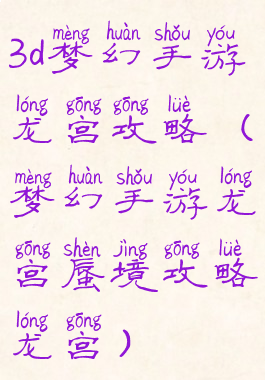 mèng huàn shǒu yóu
3d梦幻手游
lóng gōng gōng lüè
龙宫攻略（
mèng huàn shǒu yóu lóng
梦幻手游龙
gōng shèn jìng gōng lüè
宫蜃境攻略
lóng gōng
龙宫）